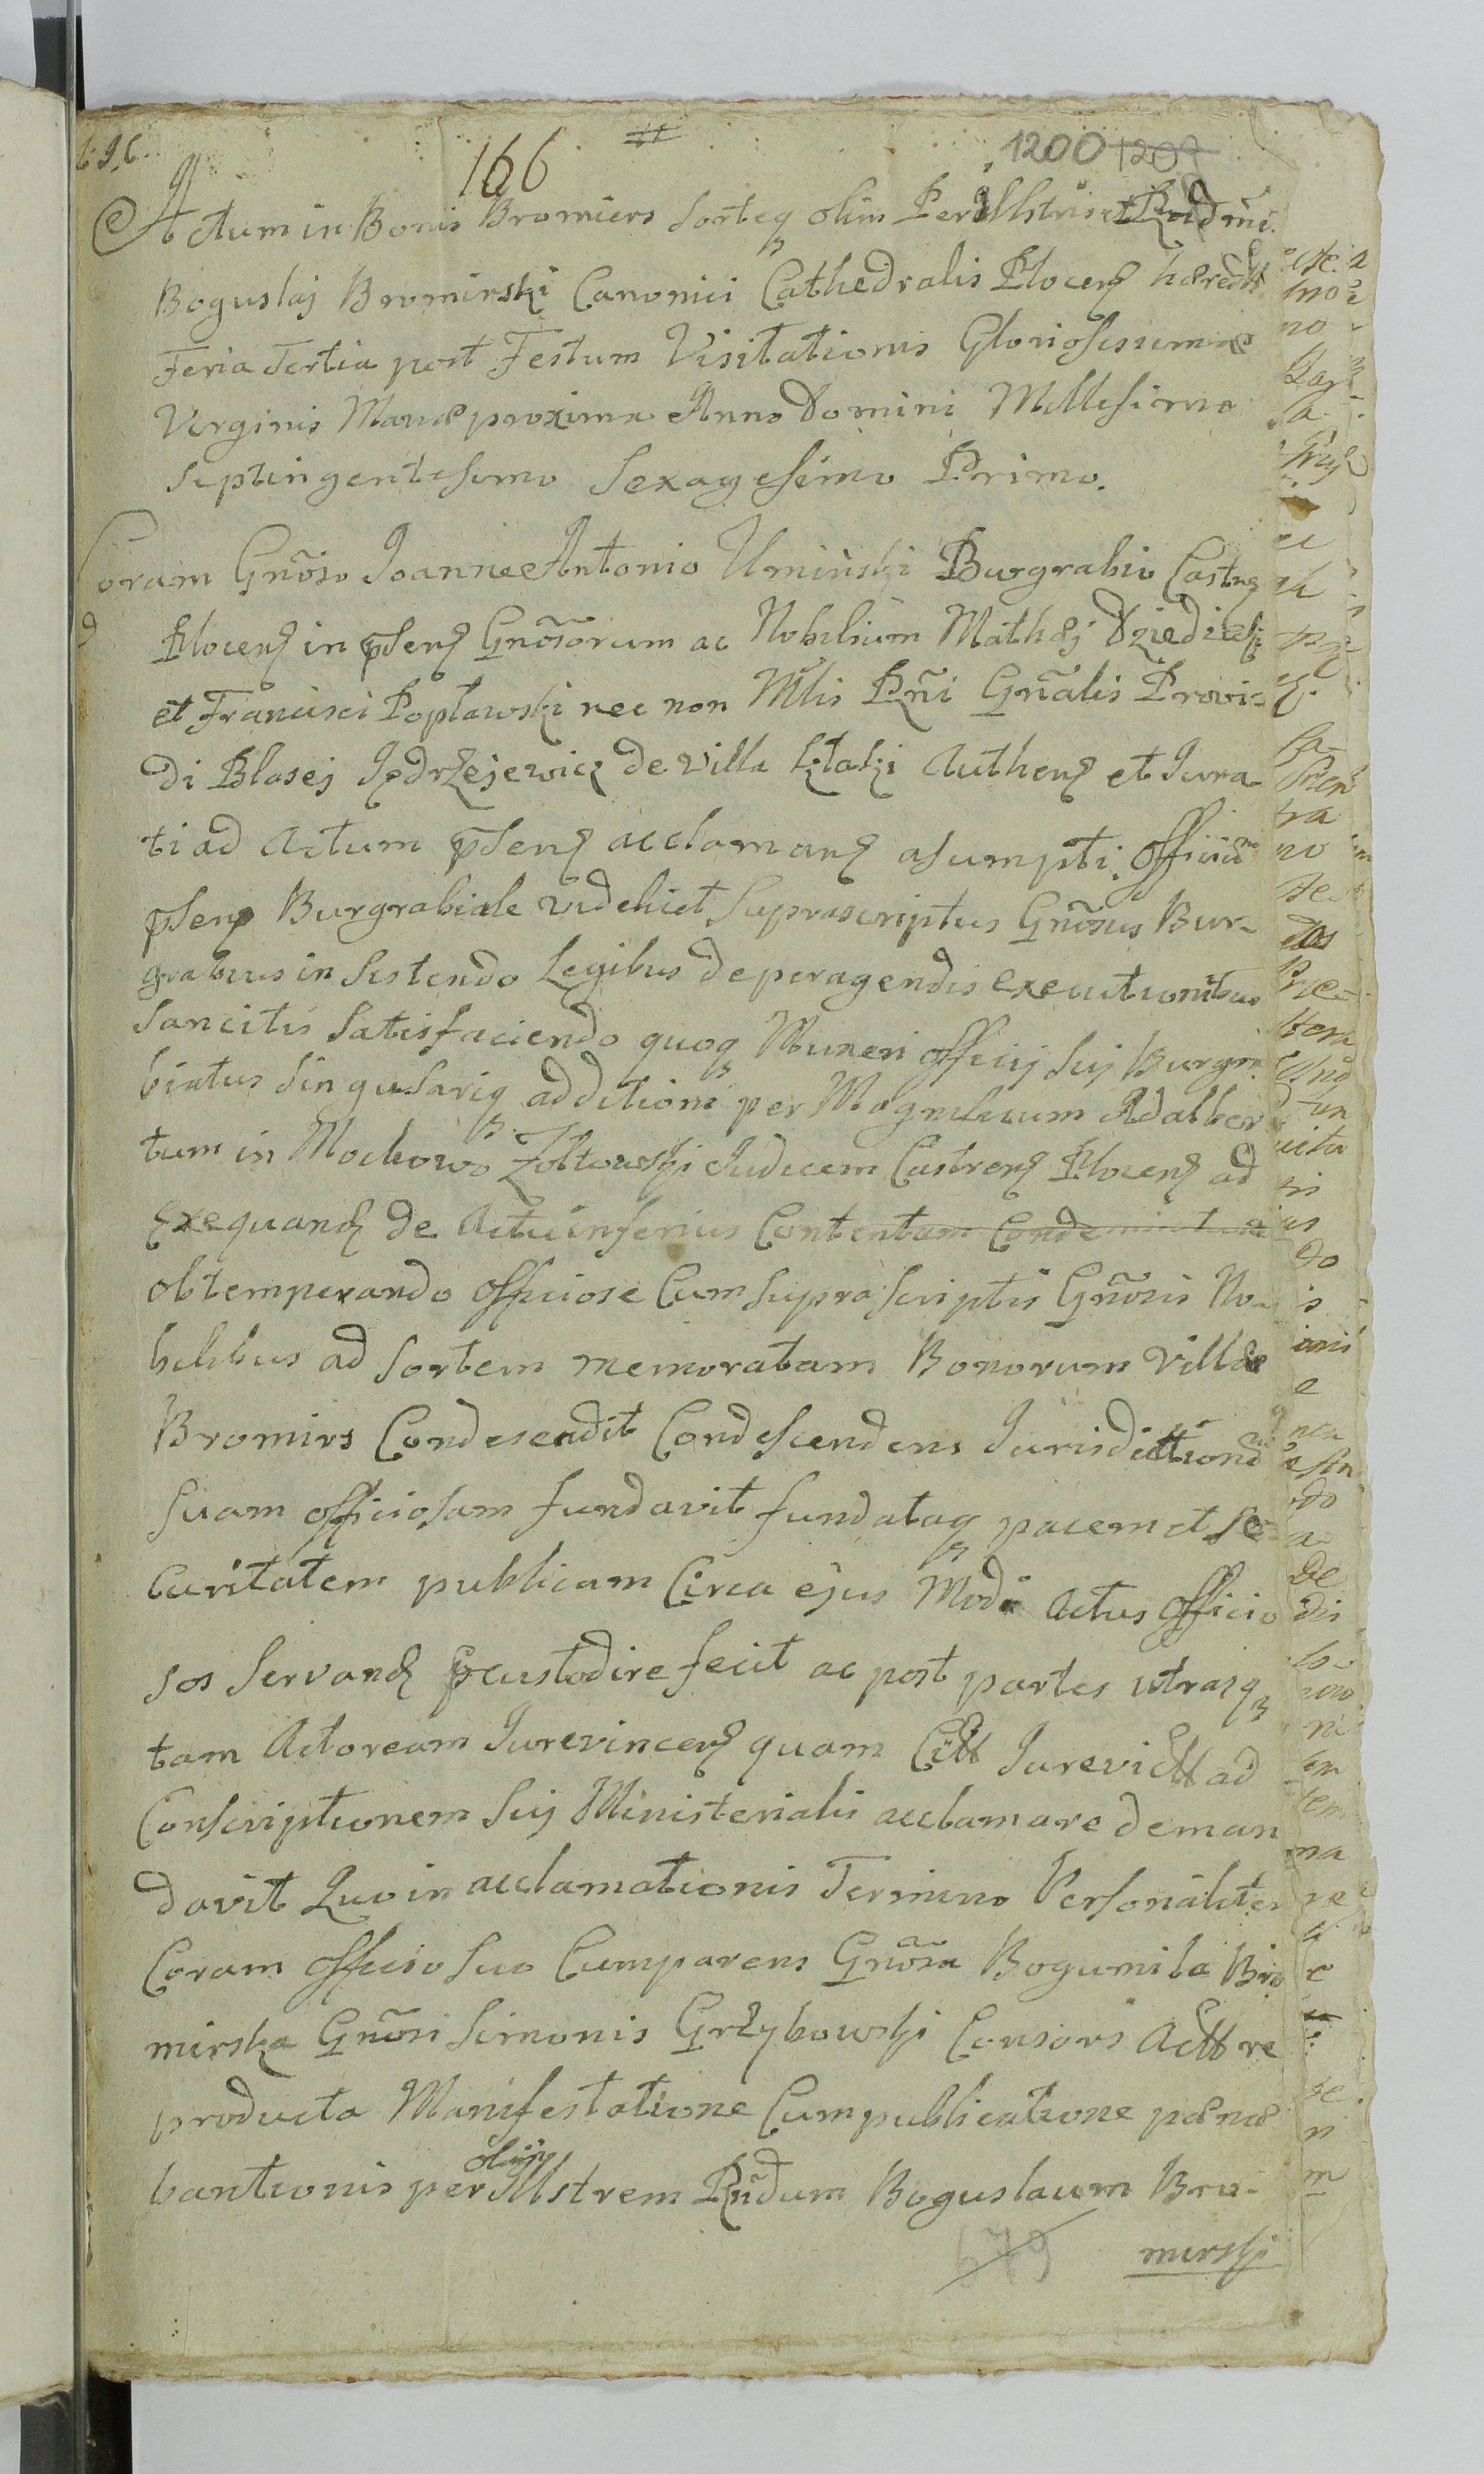 696
166
1200 1209
Actum in Bonis Bromiers Sorteq olim Perillstris et Rndmi
Boguslaj Bromirski Canonici Cathedralis Plocen hæredtt
Feria Tertia post Festum Visitationis Gloriosissimæ
Virginis Mariæ proxima Anno Domini Millesimo
Septingentesimo Sexagesimo Primo.
Coram Gnõso Joanne Antonio Uminski Burgrabio Castrg
Plocen in p̃sen Gnõsorum ac Nobilium Mathæj Dziedzicki
et Francisci Popławski nec non Mtlis Rñi Gnãlis Provi-
di Blasej Jędrzejewicz de Villa Ktaki Authen et Jura
ti ad Actum p̃sen acclaman asumpti, Officiũ
p̃sens Burgrabiale videlicet Suprascriptus Gnõsus Bur-
grabius in Sistendo Legibus de peragendis executionibus
Sancitis Satisfaciendo quoq Muneri officij Sui Burgra
biatus Singulariq additioni per Magnificum Adalber
tum in Mochowo Zołtowski Judicem Castren Plocen ad
Exequand de Actu inferius Contentam Condemnatione
obtemperando officiose Cum supra Scriptis Gnõsis No-
bilibus ad Sortem memoratam Bonorum Villæ
Bromirs Condesendit Condescendens Jurisdictionẽ
Suam officiosam fundavit fundataq pacem et Se
Curitatem publicam Circa ejus Modi Actus Officio
sos Servand p̃custodire fecit ac post partes utrasq
tam Actoream Jurevincen quam Citt Jurevictt ad
Conscriptionem Sui Ministerialis acclamare deman
davit Quo in acclamationis Termino Personaliter
Coram Officio Suo Cumparens Gnõsa Bogumila Bro
mirska Gnõsi Simonis Grzybowski Consors Actt re
producta Manifestatione Cum publicatione pænæ
bantionis per olim Illstrem Rnd̃um Boguslaum Bro-
679 mirski